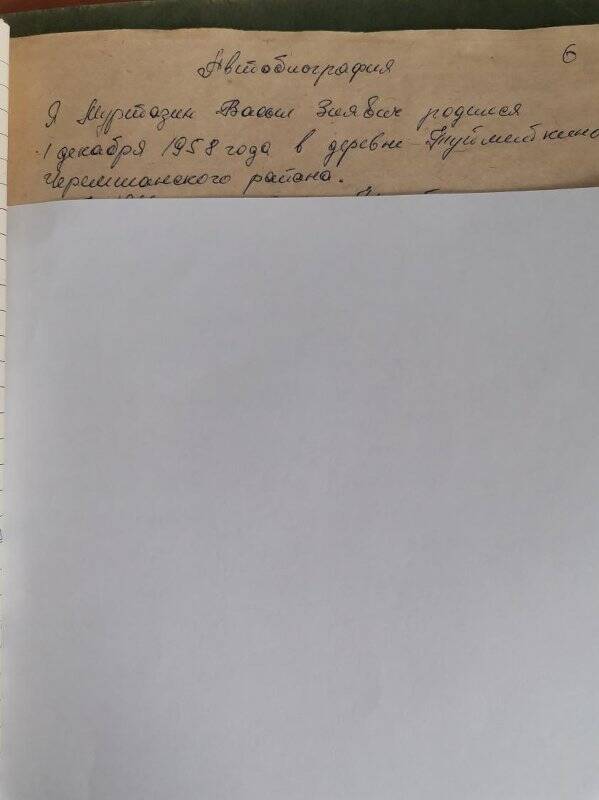 Автобиография
6
Я Муртазин Васил Зиявич родился
1 декабря 1958 года в деревне Туйметкино
Черемшанского района.